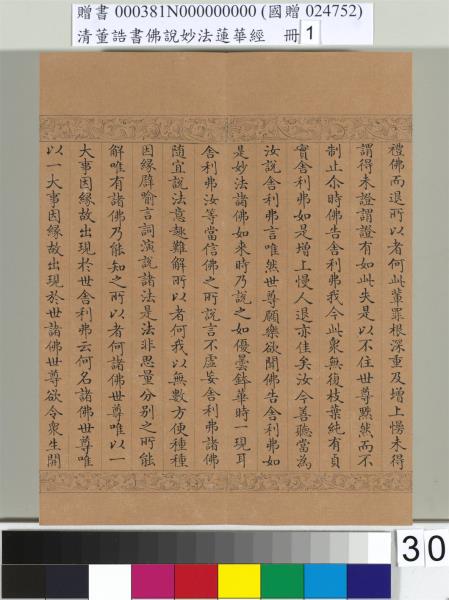 贈書 000381N000000000 (國贈 024752)
清董誥書佛說妙法蓮華經 冊 1
禮佛而退所以者何此輩罪根深重及增上慢未得
謂得未證謂證有如此失是以不住世尊默然而不
制止尒時佛告舍利弗我今此衆無復枝葉純有貞
實舍利弗如是增上慢人退亦佳矣汝今善聽當為
汝說舍利弗言唯然世尊願樂欲聞佛告舍利弗如
是妙法諸佛如來時乃說之如優曇鉢華時一現耳
舍利弗汝等當信佛之所說言不虛妄舍利弗諸佛
随宜說法意趣難解所以者何我以無數方便種種
因緣譬喻言詞演說諸法是法非思量分別之所能
解唯有諸佛乃能知之所以者何諸佛世尊唯以一
大事因緣故出現於世舍利弗云何名諸佛世尊唯
以一大事因緣故出現於世諸佛世尊欲令衆生開
30